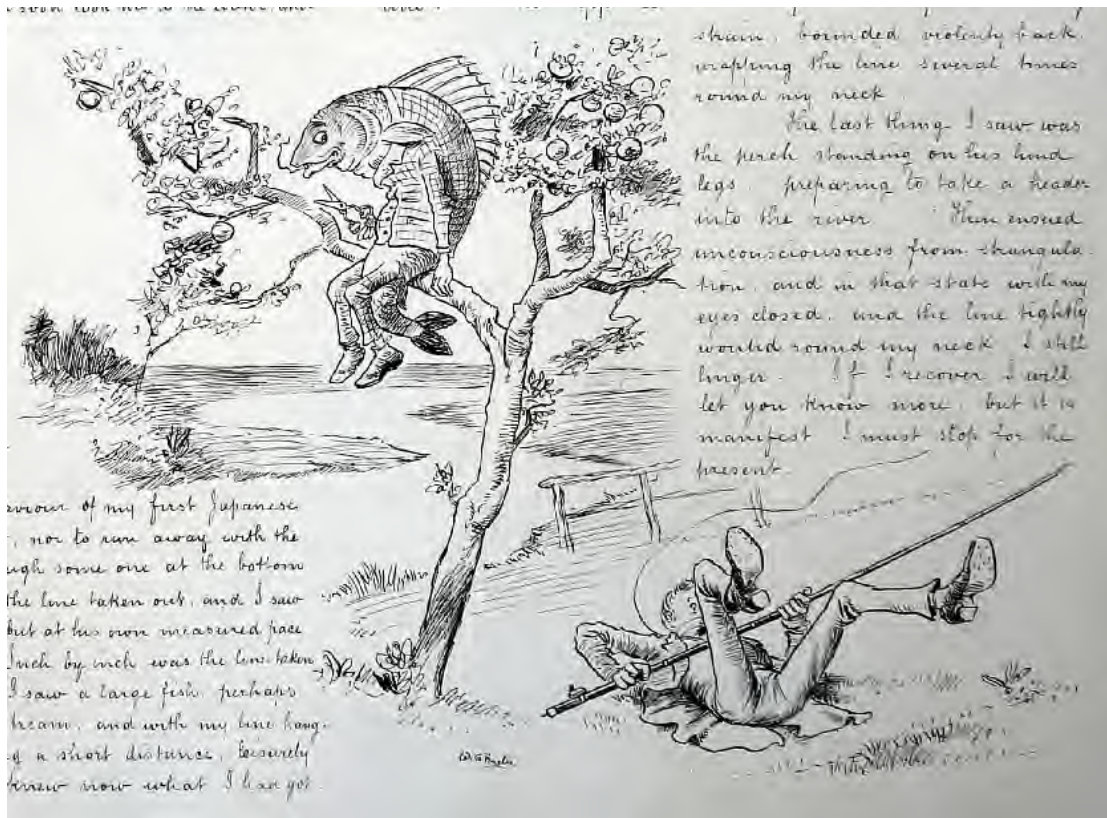 strain, bounded violently back,
wrapping the line several times
round my neck.
The last thing I saw was
the perch standing on his hind
legs, preparing to take a header
into the river. Then ensued
unconsciousness from strangula-
tion, and in that state with my
eyes closed, and the line tightly
would round my neck I still
linger. If I recover I will
let you know more, but it is
manifest I must stop for the
present.
aviour of my first Japanese
, nor to run away with the
ugh some one at the bottom
the line taken out, and I saw
but at his own measured pace
Inch by inch was the line taken
I saw a large fish, perhaps
tream, and with my line hang-
g a short distance, leisurely
knew now what I had got